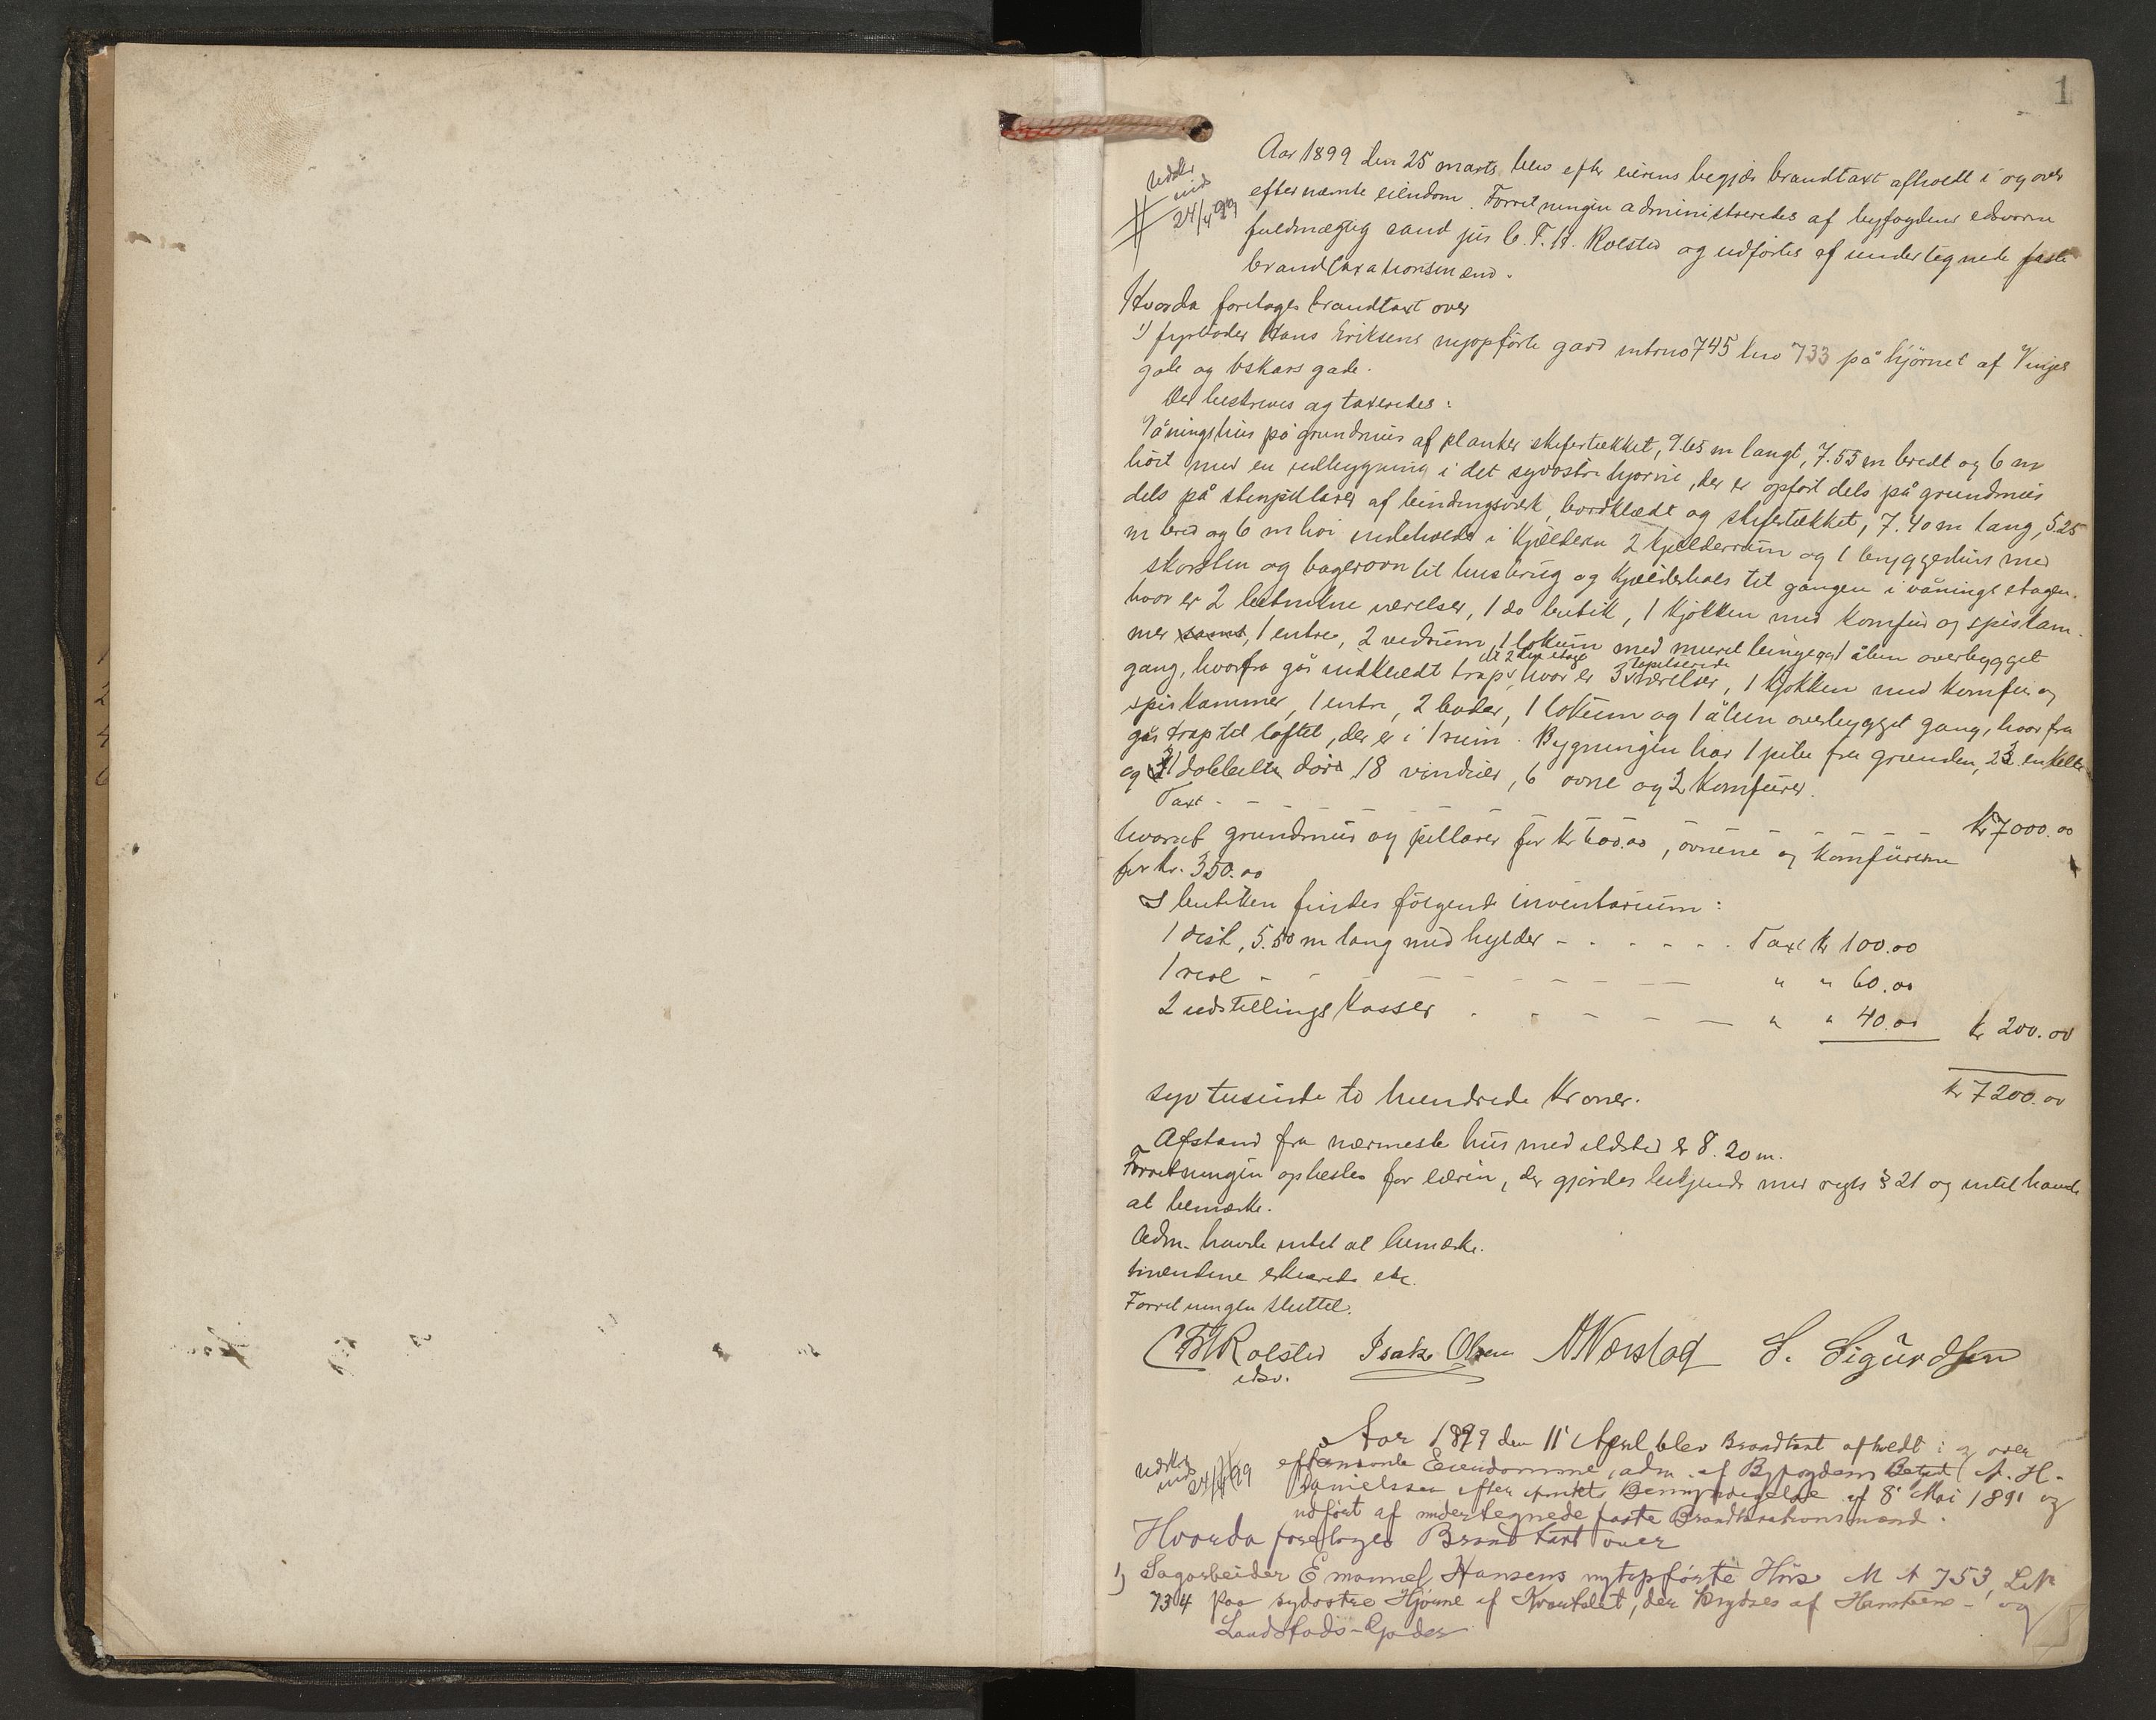 1
Aar 1899 den 25 marts blev efter eierens begjær brandtaxt afholdt i og over
efternævnte eiendom. Forretningen administreredes af byfogdens edsvorne
fuldmægtig cand jur C. F. H. Rolsted og udførtes af undertegnede faste
brandtaxationsmænd.
24/4 99
Hvorda foretoges brandtaxt over
1) fyrbøder Hans Eriksens nyopførte gard mtrno 745 bno 733 på hjørnet af Vinjes
gade og Oskars gade.
Der beskreves og taxeredes:
Våningshus på grundmur af planker skifertækket, 9.65 m langt, 7.55 m bredt og 6 m
høit med en udbygning i det sydøstre hjørne, der er opført dels på grundmur
dels på stenpillarer af bindingsverk, bordklædt og skifertækket, 7.40 m lang, 5.25
m bred og 6 m høi indeholder i kjælderen 2 kjælderrum og 1 bryggerhus med
skorsten og bagerovn til husbrug og kjælderhals til gangen i vånings etagen.
hvor er 2 betrukne værelser, 1 do butik, 1 kjøkken med komfur og spiskam-
mer samt, 1 entre, 2 vedrum, 1 lokum med muret binge og 1 åben overbygget
gang, hvorfra går indklædt trap til 2den etage, hvor er 3 tapetserede værelser, 1 kjøkken med komfur og
spiskammer, 1 entre, 2 boder, 1 lokum og 1 åben overbygget gang, hvorfra
går trap til loftet, der er i 1 rum. Bygningen har 1 pibe fra grunden, 23 enkelte
og 1 dobbelte døre 18 vinduer, 6 ovne og 2 komfurer.
Taxt - - - - - - - - - kr 7000.00
hvoraf grundmur og pillarer for kr 600.00, ovnene og komfurerne
for kr. 350.00
I butiken findes følgende inventarium:
1 disk, 5.50 m lang med hylder - - - - - - Taxt kr 100.00
1 reol - - - - - - - - " " 60.00
2 udstillingskasser - - - - - " " 40.00 kr 200.00
kr 7200.00
syv tusinde to hundrede kroner.
Afstand fra nærmeste hus med ildsted er 8.20 m.
Forretningen oplæstes for eieren, der gjordes bekjendt med regls § 21 og intet havde
at bemærke.
Adm. havde intet at bemærke.
Mændene erklærede etc.
Forretningen sluttet.
CFHRolsted Isak Olsen NNerstad S. Sigurdsen
edsv.
Aar 1899 den 11' April blev Brandtaxt afholdt i og over
efternævnte Eiendomme, adm. af Byfogdens Betjent A. H.
Danielssen efter Amtets Bemyndigelse af 8' Mai 1891 og
udført af undertegnede faste Brandtaxationsmænd.
24/4 99
Hvorda foretoges Brandtaxt over
1) Sagarbeider Emanuel Hansens nytopførte Hus M N 753, L.N
734 paa sydostre Hjørne af Kvartalet, der krydses af Hansteens- og
Landstads-Gader